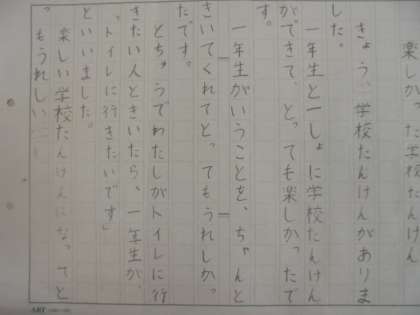 楽しかった学校たんけん
きょう、学校たんけんがありま
した。
一年生と一しょに学校たんけん
ができて、とっても楽しかったで
す。
一年生がいうことを、ちゃんと
きいてくれてとってもうれしか。
たです。
とちゅうでわたしがトイレに行
きたい人ときいたら、一年生が、
「トイレに行きたいです」
といいました。
楽しい学校たんけんになってと
。もうれしい